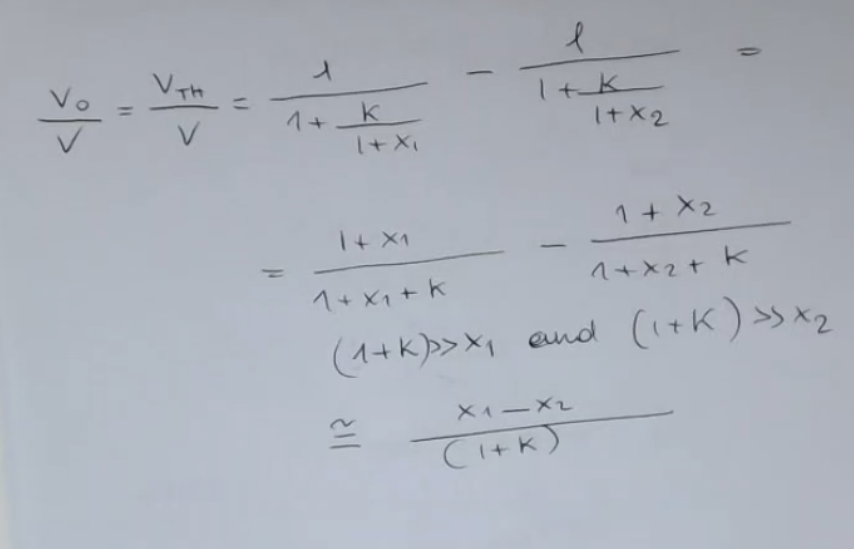 V_O/V = V_TH/V = 1/(1 + K/(1+x₁)) − 1/(1 + K/(1+x₂)) =
= (1+x₁)/(1+x₁+K) − (1+x₂)/(1+x₂+K)
(1+K)>>x₁ and (1+K)>>x₂
≅ (x₁−x₂)/(1+K)